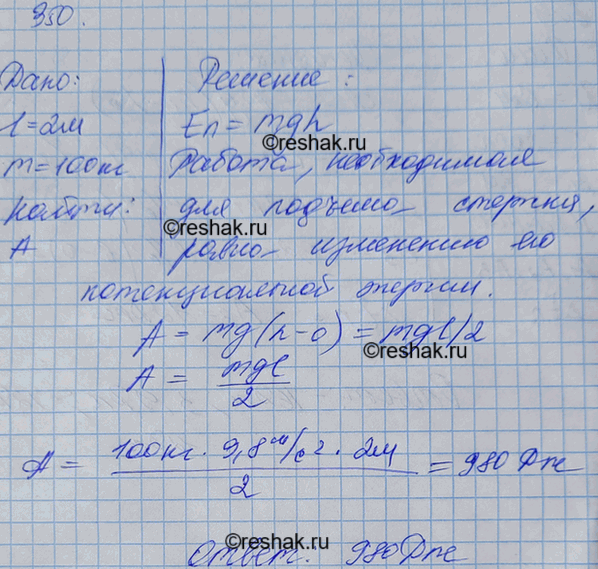 350.
Дано: Решение:
l=2м Eп=mgh
©reshak.ru
m=100кг Работа, необходимая
Найти: для подъема стержня,
©reshak.ru
A равна изменению его
потенциальной энергии.
A = mg(h-0) = mgl/2
©reshak.ru
A = mgl/2
A = 100кг · 9,8м/с² · 2м / 2 = 980 Дж
©reshak.ru
Ответ: 980Дж